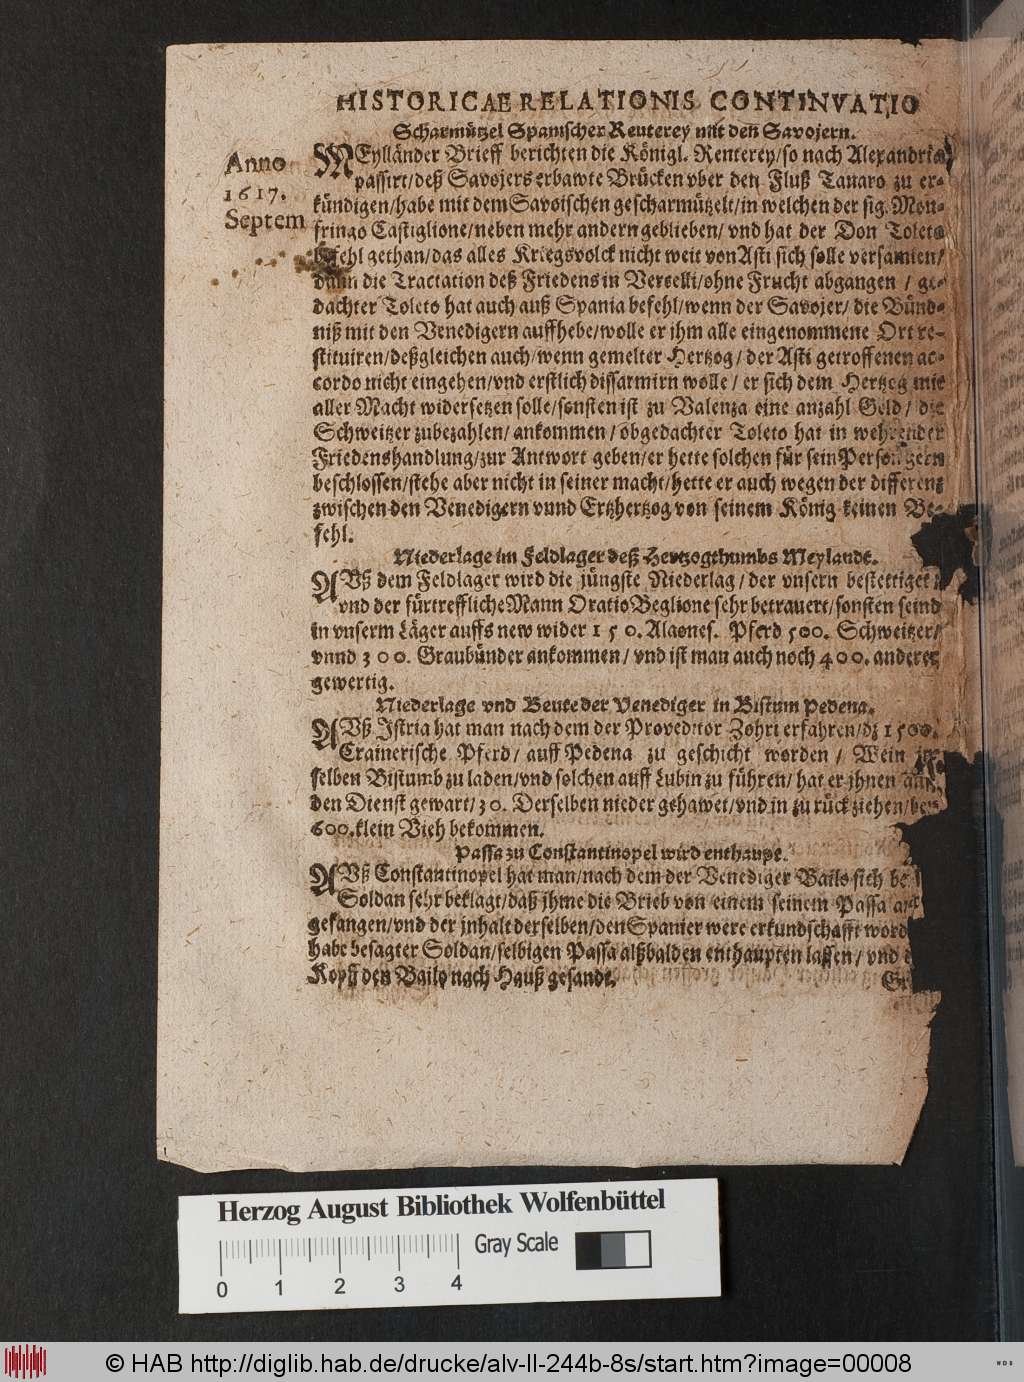 HISTORICAE RELATIONIS CONTINVATIO
Scharmützel Spanischer Reuterey mit den Savojern.
Anno
1617.
Septem
MEylländer Brieff berichten die Königl. Renterey/so nach Alexandria
passirt/deß Savojers erbawte Brücken vber den Fluß Tanaro zu er-
kündigen/habe mit dem Savoischen gescharmützelt/in welchen der sig. Mon-
fringo Castiglione/neben mehr andern geblieben/ vnd hat der Don Toleto
befehl gethan/das alles Kriegsvolck nicht weit von Asti sich solle versamlen/
dann die Tractation deß Friedens in Vercelli/ohne Frucht abgangen / ge-
dachter Toleto hat auch auß Spania befehl/wenn der Savojer/ die Bünd-
niß mit den Venedigern auffhebe/wolle er jhm alle eingenommene Ort re-
stituiren/deßgleichen auch/wenn gemelter Hertzog/ der Asti getroffenen ac-
cordo nicht eingehen/vnd erstlich dissarmirn wolle/ er sich dem Hertzog mit
aller Macht widersetzen solle/sonsten ist zu Valenza eine anzahl Geld/ die
Schweitzer zubezahlen/ ankommen / obgedachter Toleto hat in wehrender
Friedenshandlung/zur Antwort geben/er hette solchen für sein Person gern
beschlossen/stehe aber nicht in seiner macht/hette er auch wegen der differenz
zwischen den Venedigern vnnd Ertzhertzog von seinem König keinen Be-
fehl.
Niederlage im Feldlager deß Hertzogthumbs Meylandt.
AVß dem Feldlager wird die jüngste Niederlag/ der vnsern bestettiget
vnd der fürtreffliche Mann Oratio Beglione sehr betrauert/sonsten seind
in vnserm Läger auffs new wider 150. Alaones. Pferd 500. Schweitzer/
vnnd 300. Graubünder ankommen/ vnd ist man auch noch 400. anderer
gewertig.
Niederlage vnd Beute der Venediger in Bistum Pedena.
AVß Istria hat man nach dem der Proveditor Zohri erfahren/dz 1500.
Crainerische Pferd/ auff Pedena zu geschicht worden/ Wein
selben Bistumb zu laden/vnd solchen auff Lubin zu führen/ hat er jhnen auff
den Dienst gewart/30. Derselben nieder gehawet/vnd in zu rück ziehen/bey
600.klein Vieh bekommen.
Passa zu Constantinopel wird enthaupt.
AVß Constantinopel hat man/nach dem der Venediger Bailo sich
Soldan sehr beklagt/daß jhme die Brieb von einem seinem Passa
gefangen/vnd der jnhalt derselben/den Spanier were erkundschafft
habe besagter Soldan/selbigen Passa alßbalden enthaupten lassen/ vnd
Kopff den Bailo nach Hauß gesandt.
Herzog August Bibliothek Wolfenbüttel
Gray Scale
0 1 2 3 4
© HAB http://diglib.hab.de/drucke/alv-ll-244b-8s/start.htm?image=00008